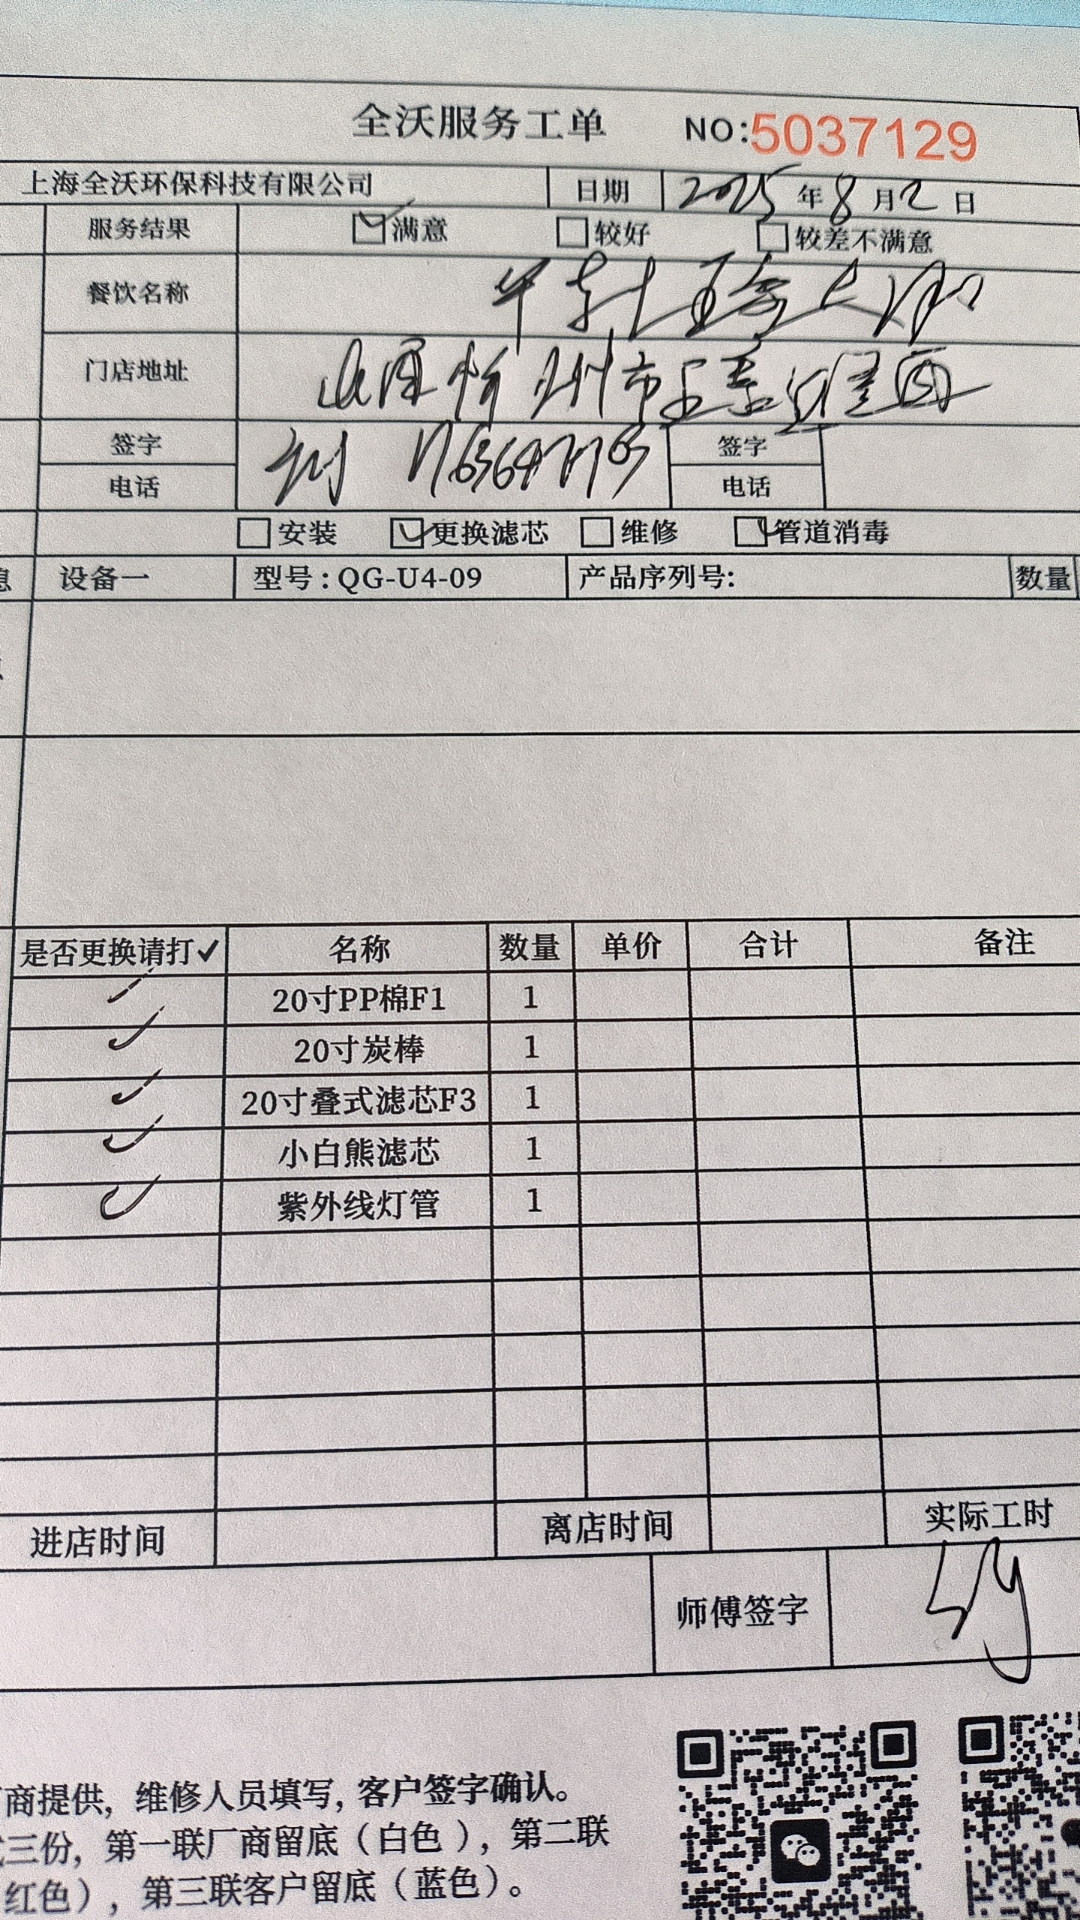 全沃服务工单 NO:5037129
上海全沃环保科技有限公司 日期 2025年8月2日
服务结果 满意 较好 较差不满意
餐饮名称
门店地址
签字 签字
电话 电话
安装 更换滤芯 维修 管道消毒
设备一 型号:QG-U4-09 产品序列号: 数量
是否更换请打✓ 名称 数量 单价 合计 备注
20寸PP棉F1 1
20寸炭棒 1
20寸叠式滤芯F3 1
小白熊滤芯 1
紫外线灯管 1
进店时间 离店时间 实际工时
师傅签字
商提供, 维修人员填写, 客户签字确认。
三份, 第一联厂商留底(白色), 第二联
红色), 第三联客户留底(蓝色)。